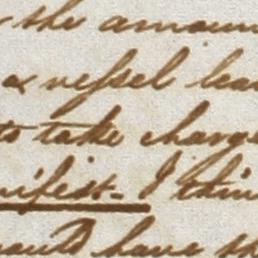 the amoun
& vessel lea
to take charge
nifest. I thin
would have th